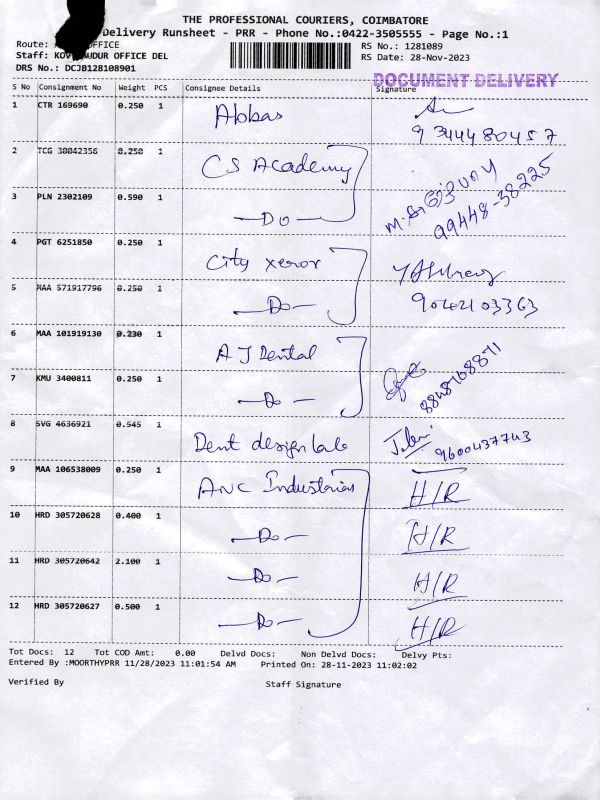 THE PROFESSIONAL COURIERS, COIMBATORE
Delivery Runsheet - PRR - Phone No.:0422-3505555 - Page No.:1
Route: OFFICE RS No.: 1281089
Staff: KOV UDUR OFFICE DEL RS Date: 28-Nov-2023
DRS No.: DCJB128108901
DOCUMENT DELIVERY
S No Consignment No Weight PCS Consignee Details Signature
1 CTR 169690 0.250 1 Abbas
9344480457
2 TCG 30042356 0.250 1 CS Academy
3 PLN 2302109 0.590 1 —Do— 99448-38225
4 PGT 6251850 0.250 1 City xerox
5 MAA 571917796 0.250 1 —Do— 9042103363
6 MAA 101919130 0.230 1 A J Dental
7 KMU 3400811 0.250 1 —Do— 8848768871
8 SVG 4636921 0.545 1 Dent design lab 9600437743
9 MAA 106538009 0.250 1 ANC Industries H/R
10 HRD 305720628 0.400 1 —Do— H/R
11 HRD 305720642 2.100 1 —Do— H/R
12 HRD 305720627 0.500 1 —Do— H/R
Tot Docs: 12 Tot COD Amt: 0.00 Delvd Docs: Non Delvd Docs: Delvy Pts:
Entered By :MOORTHYPRR 11/28/2023 11:01:54 AM Printed On: 28-11-2023 11:02:02
Verified By Staff Signature